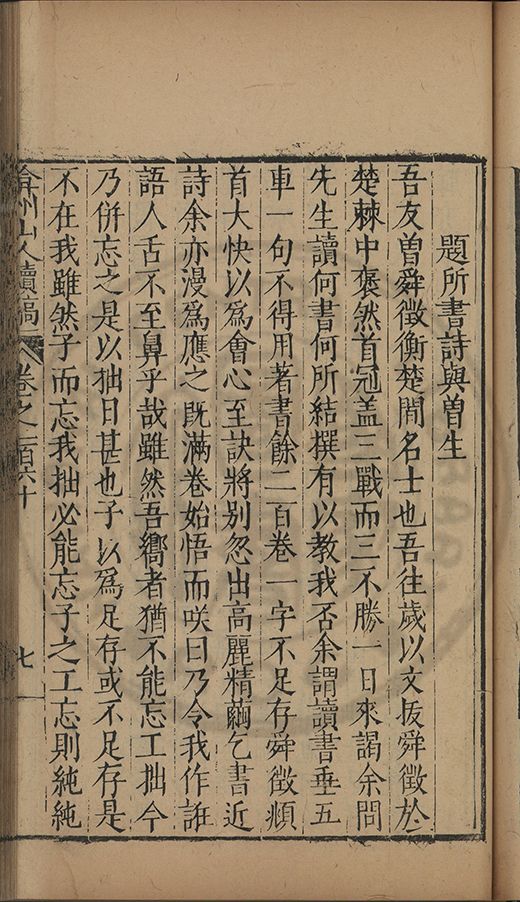 題所書詩與曽生
吾友曽舜徵衡楚間名士也吾往歲以文㧞舜徵於
楚棘中裒然首冠盖三戰而三不勝一日來謁余問
先生讀何書何所結撰有以教我否余謂讀書垂五
車一句不得用著書餘二百卷一字不足存舜徵頫
首大快以為會心至訣將别忽出高麗精繭乞書近
詩余亦漫為應之既滿卷始悟而咲曰乃令我作誑
語人舌不至鼻乎哉雖然吾嚮者猶不能忘工拙今
乃併忘之是以拙日甚也子以為足存或不足存是
不在我雖然子而忘我拙必能忘子之工忘則純純
弇州山人續稿 卷之一百六十 七